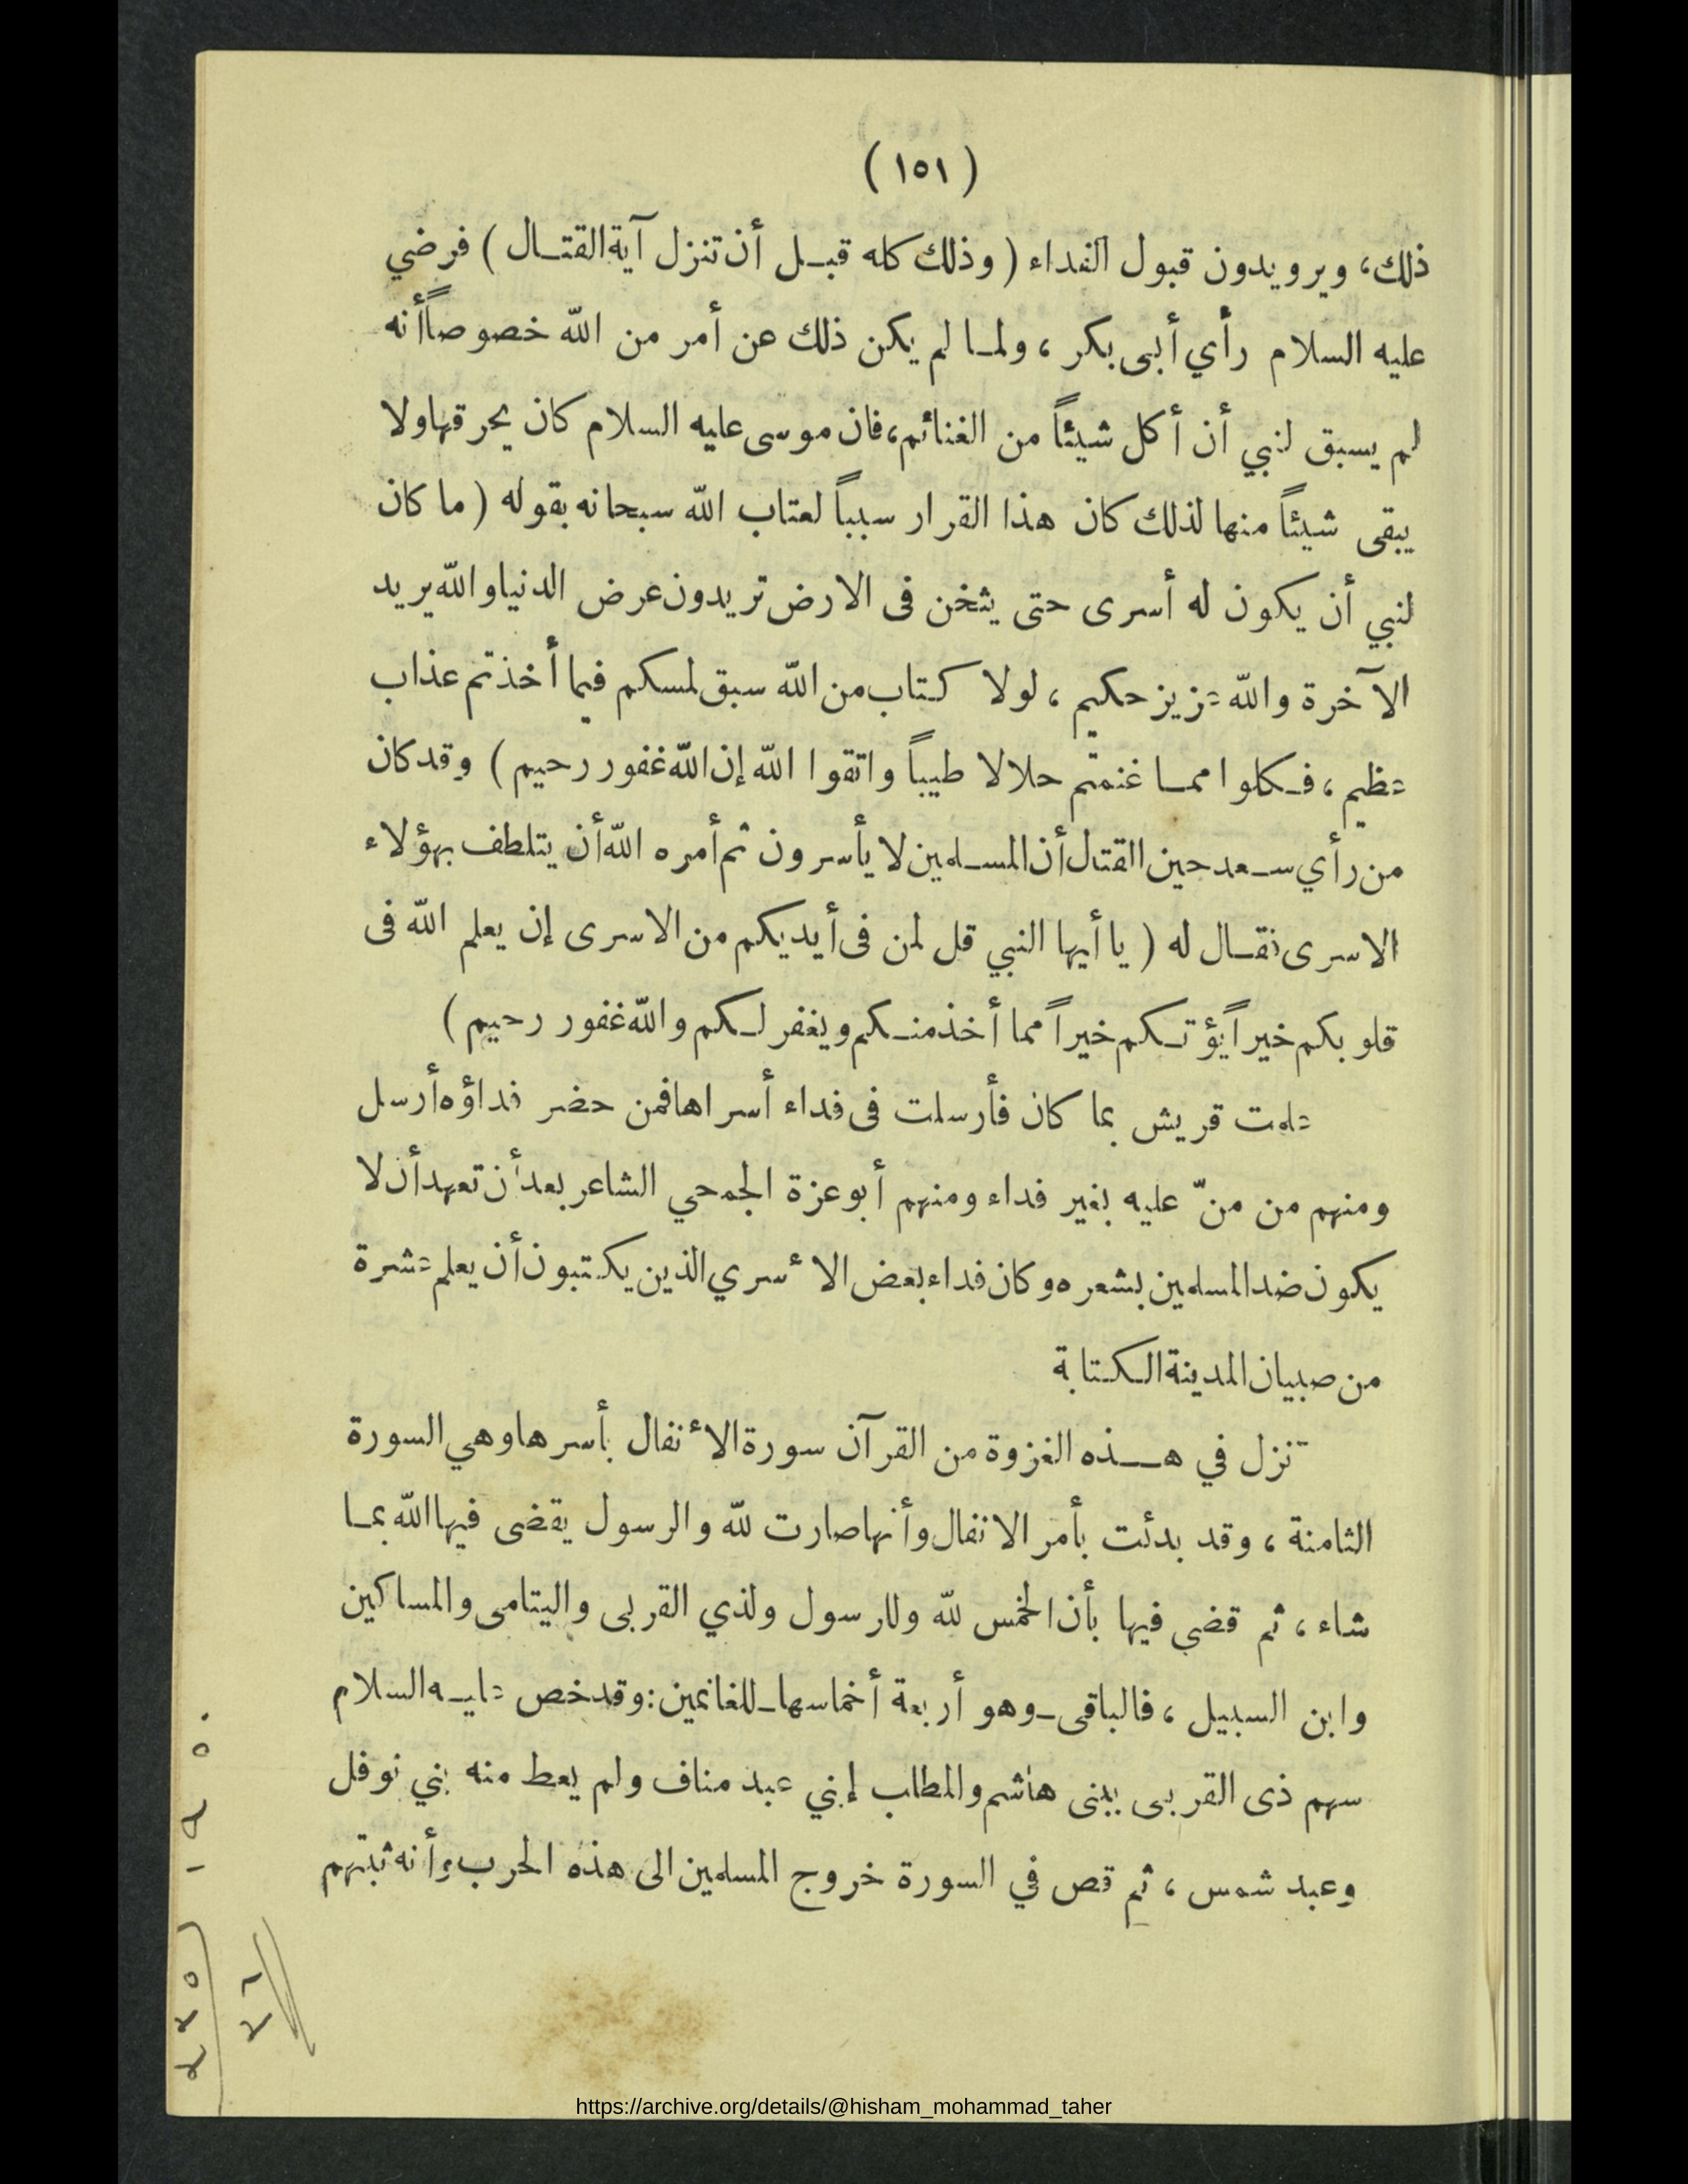 ( ١٥١ )
ذلك، ويرويدون قبول الفداء ( وذلك كله قبل أن تنزل آية القتال ) فرضي
عليه السلام رأي أبى بكر ، ولما لم يكن ذلك عن أمر من الله خصوصاً أنه
لم يسبق لنبي أن أكل شيئاً من الغنائم، فان موسى عليه السلام كان يحرقها ولا
يبقى شيئاً منها لذلك كان هذا القرار سبباً لعتاب الله سبحانه بقوله ( ما كان
لنبي أن يكون له أسرى حتى يثخن فى الارض تريدون عرض الدنيا والله يريد
الآخرة والله عزيز حكيم ، لولا كتاب من الله سبق لمسكم فيما أخذتم عذاب
عظيم ، فكلوا مما غنمتم حلالا طيباً واتقوا الله إن الله غفور رحيم ) وقد كان
من رأي سعد حين القتال أن المسلمين لا يأسرون ثم أمره الله أن يتلطف بهؤلاء
الاسرى فقال له ( يا أيها النبي قل لمن فى أيديكم من الاسرى إن يعلم الله فى
قلوبكم خيراً يؤتكم خيراً مما أخذ منكم ويغفر لكم والله غفور رحيم )
علمت قريش بما كان فأرسلت فى فداء أسراها فمن حضر فداؤه أرسل
ومنهم من منّ عليه بغير فداء ومنهم أبو عزة الجمحي الشاعر بعد أن تعهد أن لا
يكون ضد المسلمين بشعره وكان فداء بعض الأسري الذين يكتبون أن يعلم عشرة
من صبيان المدينة الكتابة
تنزل في هذه الغزوة من القرآن سورة الأنفال بأسرها وهي السورة
الثامنة ، وقد بدئت بأمر الانفال وأنها صارت لله والرسول يقضى فيها الله بما
شاء ، ثم قضي فيها بأن الخمس لله وللرسول ولذي القربى واليتامى والمساكين
وابن السبيل ، فالباقى ـ وهو أربعة أخماسها ـ للغانمين : وقد خص عليه السلام
سهم ذى القربى ببنى هاشم والمطلب إبني عبد مناف ولم يعط منه بني نوفل
وعبد شمس ، ثم قص في السورة خروج المسلمين الى هذه الحرب وأنه ثبتهم
https://archive.org/details/@hisham_mohammad_taher